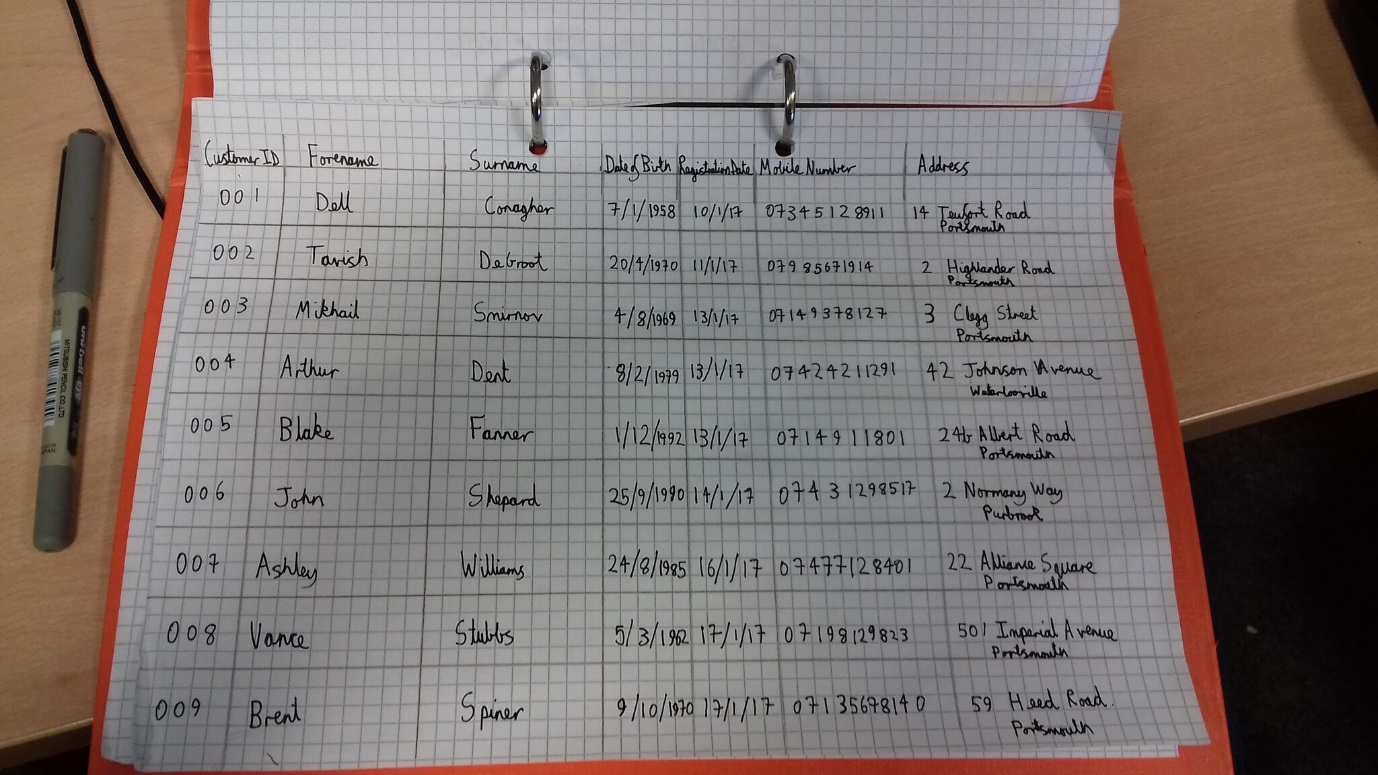 Customer ID Forename Surname Date of Birth Registration Date Mobile Number Address
001 Dell Conagher 7/1/1958 10/1/17 07345128911 14 Teufort Road
Portsmouth
002 Tavish DeGroot 20/4/1970 11/1/17 07985671914 2 Highlander Road
Portsmouth
003 Mikhail Smirnov 4/8/1969 13/1/17 07149378127 3 Clegg Street
Portsmouth
004 Arthur Dent 8/2/1979 13/1/17 07424211291 42 Johnson Avenue
Waterlooville
005 Blake Fanner 1/12/1992 13/1/17 0714911801 24b Albert Road
Portsmouth
006 John Shepard 25/9/1990 14/1/17 07431298517 2 Normany Way
Purbrook
007 Ashley Williams 24/8/1985 16/1/17 07477128401 22 Alliance Square
Portsmouth
008 Vance Stubbs 5/3/1962 17/1/17 07198129823 501 Imperial Avenue
Portsmouth
009 Brent Spiner 9/10/1970 17/1/17 07135678140 59 Heed Road.
Portsmouth
uni-ball eye
MITSUBISHI PENCIL CO.,LTD